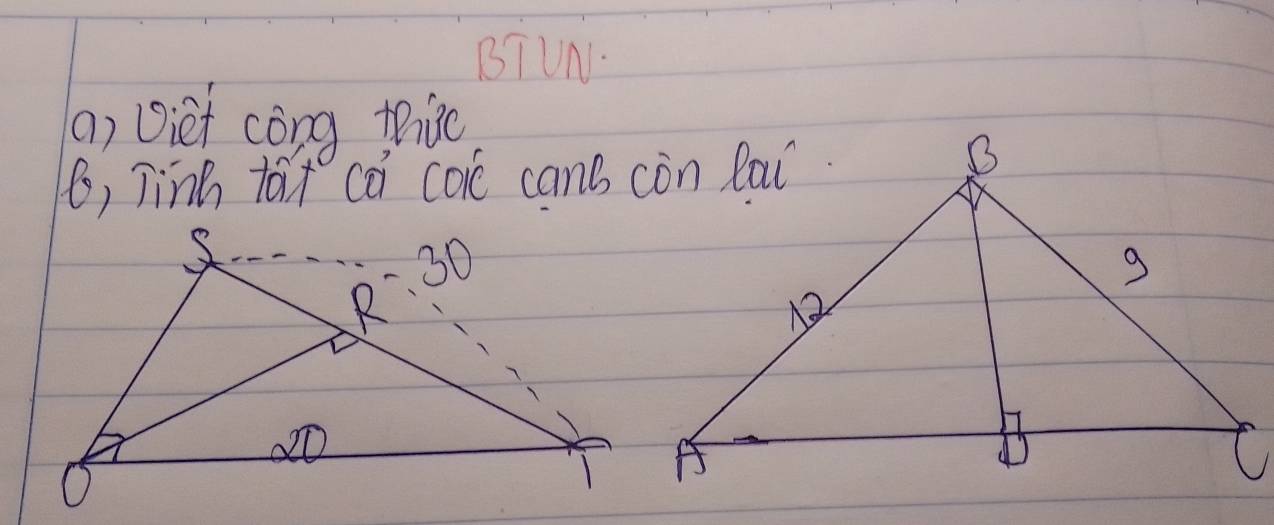 BTVN.
a, Viết công thức
b, Tính tất cả các cạnh còn lại.
B
S
30
9
R
12
20
A
D
C
O
T